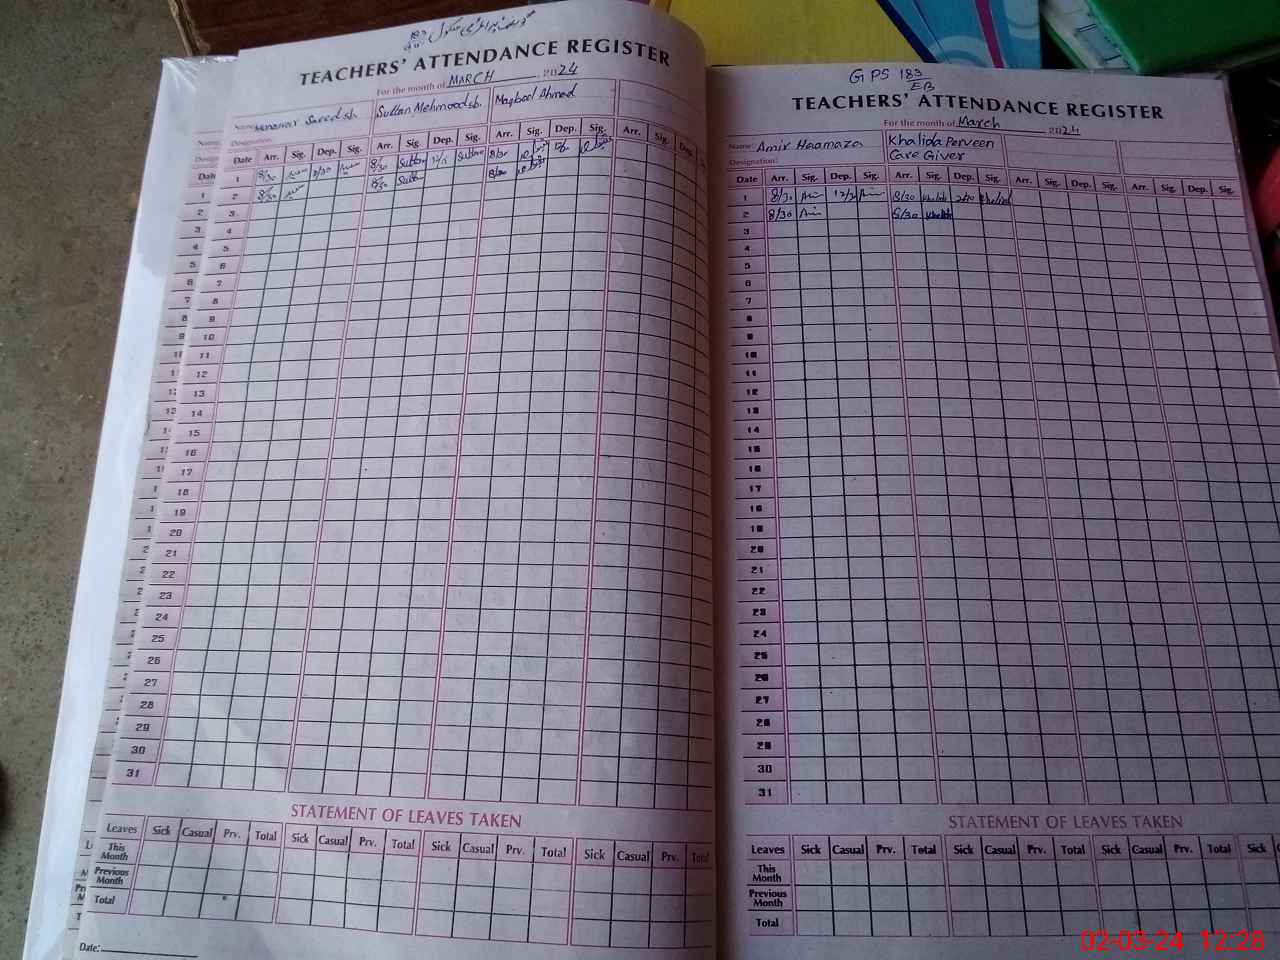 گورنمنٹ پرائمری سکول
TEACHERS' ATTENDANCE REGISTER
For the month of MARCH 2024
Name: Saeed sb. Sultan Mehmood sb. Maqbool Ahmad
Designation:
Date Arr. Sig. Dep. Sig. Arr. Sig. Dep. Sig. Arr. Sig. Dep. Sig. Arr. Sig. Dep.
1 8/30 8/30 Sultan Sultan 8/30
2 8/30 8/30 Sultan 8/30
3
4
5
6
7
8
9
10
11
12
13
14
15
16
17
18
19
20
21
22
23
24
25
26
27
28
29
30
31
STATEMENT OF LEAVES TAKEN
Leaves Sick Casual Prv. Total Sick Casual Prv. Total Sick Casual Prv. Total Sick Casual Prv. Total
This Month
Previous Month
Total
Date:
GPS 183/EB
TEACHERS' ATTENDANCE REGISTER
For the month of March 2024
Name: Amir Haamaza Khalida Perveen
Designation: Care Giver
Date Arr. Sig. Dep. Sig. Arr. Sig. Dep. Sig. Arr. Sig. Dep. Sig. Arr. Sig. Dep. Sig.
1 8/30 Amir 12/30 Amir 8/30 Khalida Khalida
2 8/30 Amir 8/30 Khalida
3
4
5
6
7
8
9
10
11
12
13
14
15
16
17
18
19
20
21
22
23
24
25
26
27
28
29
30
31
STATEMENT OF LEAVES TAKEN
Leaves Sick Casual Prv. Total Sick Casual Prv. Total Sick Casual Prv. Total Sick
This Month
Previous Month
Total
02-03-24 12:28